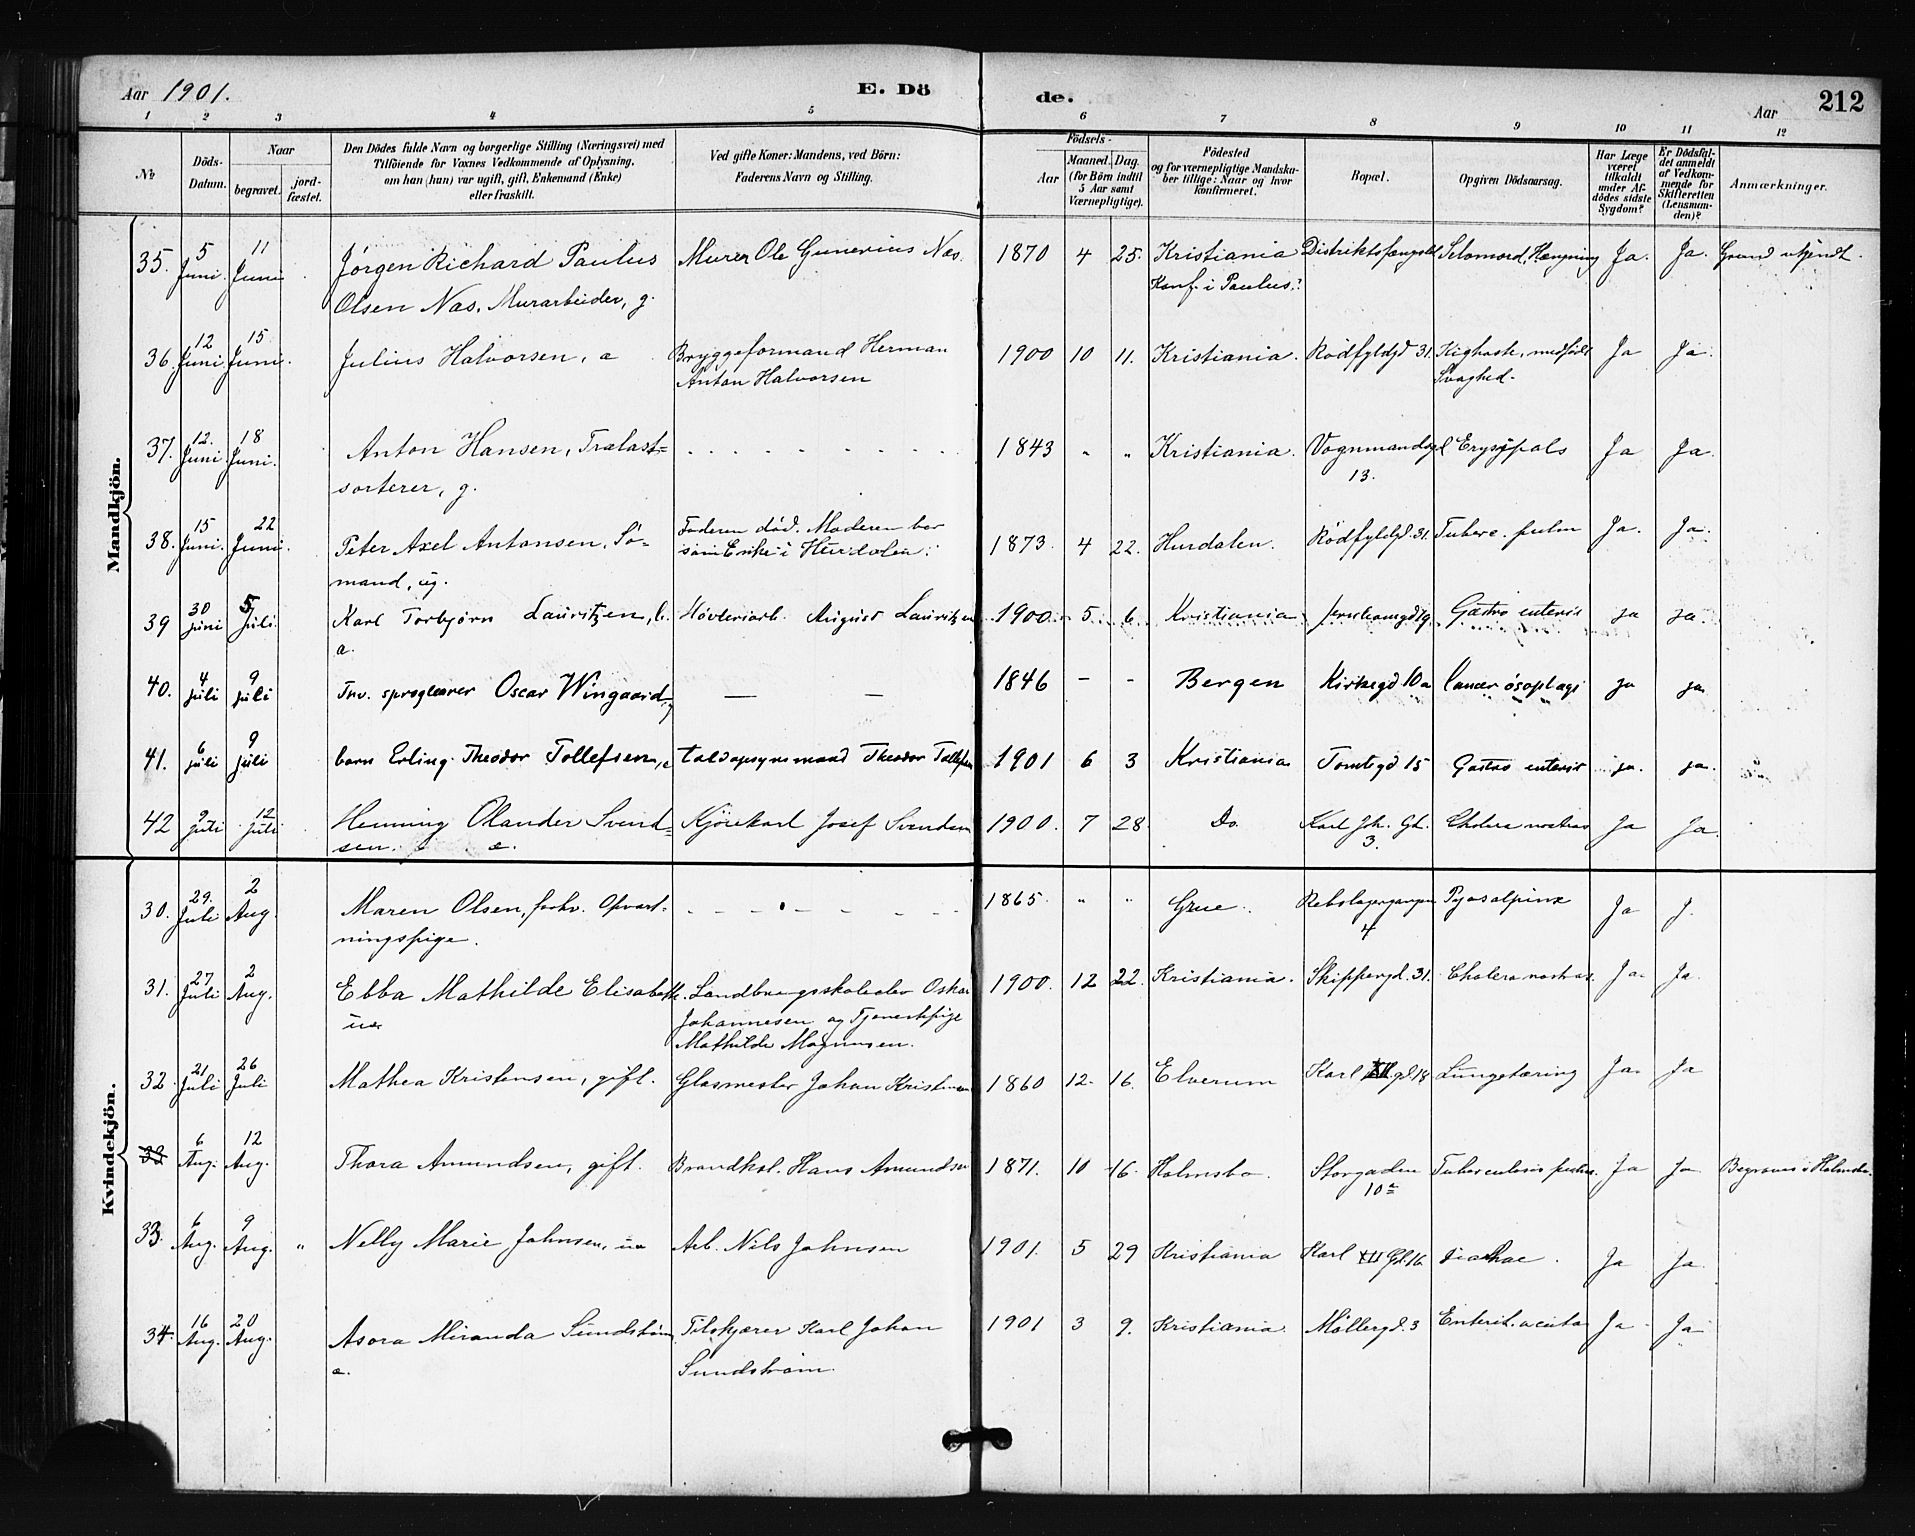 Aar 1901.
E. Dö
de.
Aar
212
1 2 3 4 5 6 7 8 9 10 11 12
No
Döds-
Datum.
Naar
begravet.
jord-
fæstet.
Den Dödes fulde Navn og borgerlige Stilling (Næringsvei) med
Tilföiende for Voxnes Vedkommende af Oplysning,
om han (hun) var ugift, gift, Enkemand (Enke)
eller fraskilt.
Ved gifte Koner: Mandens, ved Börn:
Faderens Navn og Stilling.
Födsels-
Aar
Maaned. Dag.
(for Börn indtil
5 Aar samt
Værnepligtige).
Födested
og for værnepligtige Mandska-
ber tillige: Naar og hvor
konfirmeret.
Bopæl.
Opgiven Dödsaarsag.
Har Læge
været
tilkaldt
under Af-
dödes sidste
Sygdom?
Er Dödsfal-
det anmeldt
af Vedkom-
mende for
Skifteretten
(Lensman-
den)?
Anmærkninger.
Mandkjön.
35. 5 Juni. 11 Juni Jørgen Richard Paulus Murer Ole Gunerius Næs. 1870 4 25. Kristiania Distriktsfængslet Selvmord, Hængning Ja. Ja. Grund ukjendt.
Olsen Næs, Murarbeider, g. Konf. i Paulus.
36. 12 Juni. 15. Juni. Julius Halvorsen, a Bryggeformand Herman 1900 10 11. Kristiania. Rödfyldgd 31. Kighoste, medfödt Ja Ja.
Anton Halvorsen Svaghed.
37. 12. Juni 18 Juni. Anton Hansen, Trælast= 1843 " " Kristiania. Vognmandsgd Erysipelas Ja Ja.
sorterer, g. 13.
38. 15 Juni. 22 Juni. Peter Axel Antonsen, Sö- Faderen död. Moderen bor 1873. 4 22. Hurdalen. Rödfyldgd. 31. Tuberc. pulm Ja. Ja.
mand, ug. som Enke i Hurdalen.
39 30 juni 5 juli. Karl Torbjørn Lauritzen, b. Høvleriarb. August Lauritzen 1900. 5 6 Kristiania Gastro enterit ja ja.
a.
40. 4 juli 9 juli Inv. sproglærer Oscar Wingaard, — — 1846 - - Bergen Kirkegd 10a Cancer ösophagi ja ja
41. 6 juli 9 juli barn Erling Theodor Tollefsen, toldopsynsmand Theodor Tollefsen 1901 6 3 Kristiania Tomtegd 15 Gastro enterit ja. ja.
42 9 juli 12 juli Henning Olander Svend= Kjörekarl Josef Svendsen 1900. 7 28 Do. Karl Jh. Gd. Cholera nostras Ja Ja
sen. a. 3.
Kvindekjön.
30. 29. Juli 2 Aug. Maren Olsen, forhv. Opvart- 1865. " " Grue. Rebslagergangen Pyosalpinx Ja J.
ningspige. 4
31. 27 Juli 2 Aug. Ebba Mathilde Elisabeth. Landbrugsskoleelev Oskar 1900. 12 22. Kristiania. Skippergd. 31. Cholera nostras. Ja. Ja.
ua Johannesen og Tjenestepige
Mathilde Magnusen.
32. 21 Juli 26 Juli Mathea Kristensen, gift. Glasmester Johan Kristensen 1860 12. 16. Elverum Karl XII gd. 18 Lungetæring Ja. Ja
33 6 Aug. 12 Aug. Thora Amundsen, gift. Brandkst. Hans Amundsen 1871. 10 16. Holmsbo. Storgaden Tuberculosis pulm. Ja Ja Begraves i Holmsbo.
10a
33. 6 Aug. 9 Aug. " Nelly Marie Johnsen, ua Arb. Nils Johnsen 1901. 5 29 Kristiania Karl XII Gd. 16 Ja Ja
34. 16 Aug. 20 Aug. Asora Miranda Sundström Filskjærer Karl Johan 1901 3 9. Kristiania. Möllergd. 3 Enterit. acuta Ja Ja
a. Sundström.